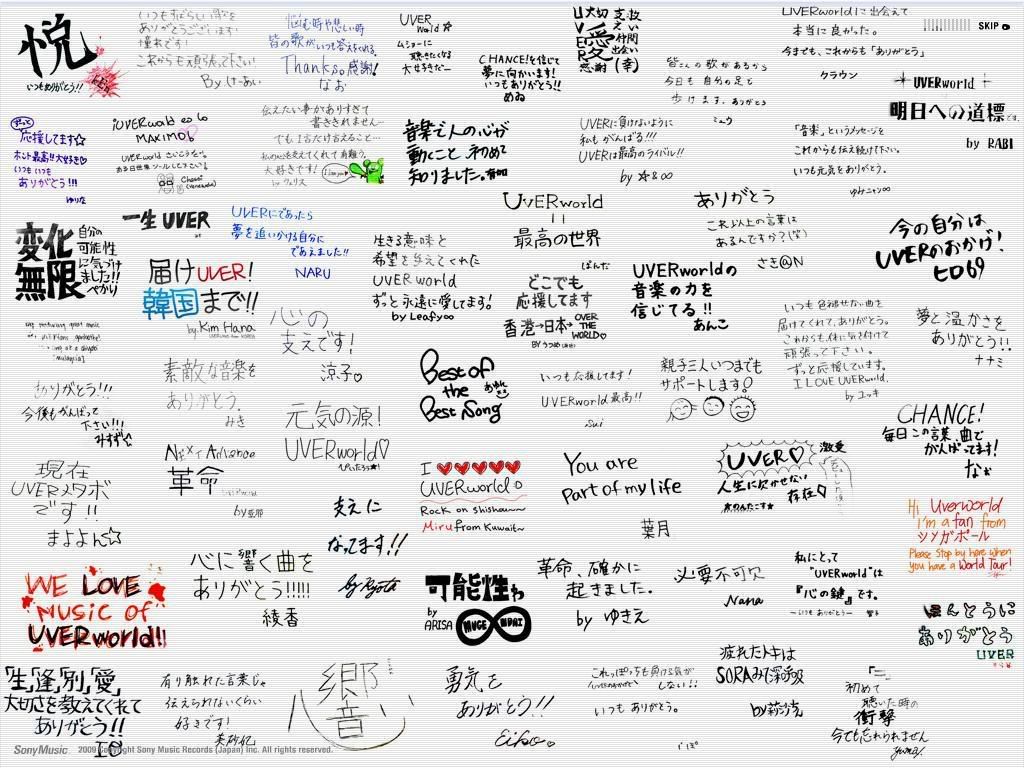 悦
いつもありがとう!!
いつもすばらしい曲を
ありがとうございます!
憧れです!
これからも頑張って下さい!
By けーあい
悩む時や悲しい時
皆の歌がいつも答えをくれる。
Thanks。感謝!
なお
UVER
World☆
聴きたくなる
大好きだー
CHANCE!を信じて
夢に向かいます!
いつもありがとう!!
めぬ
UVER
大切
愛
感謝
支え
救い
仲間
出会い
(幸)
皆さんの歌があるから
今日も 自分の足と
歩けます。ありがとう
ミュウ
UVERworldに出会えて
本当に良かった。
今までも、これからも「ありがとう」
クラウン
SKIP
UVERworld
明日への道標です。
by RABI
ずっと
応援してます☆
ホント最高!!大好き♡
いつもいつも
ありがとう!!!
ゆりな
¡UVERworld es lo
MAXIMO!
UVERworld さいこうだぜ。
ある日世界ツールして下さいな!
Chassi
(venezuela)
伝えたい事がありすぎて
書ききれません…
でも1言だけ言えること…
大好きです!
I love you♡
音楽で人の心が
動くこと、初めて
知りました。
UVERに負けないように
私もがんばる!!!
UVERは最高のライバル!!
by ☆800
「音楽」というメッセージを
これからも伝え続け下さい。
いつも元気をありがとう。
ゆみニャン∞
変化
無限
自分の
可能性
に気づけ
ました!!
ぺかり
一生 UVER
UVERにであったら
夢を追いかける自分に
であえました!!
NARU
UVERworld
=
最高の世界
ぱんだ
ありがとう
これ以上の言葉は
あるんですか?(笑)
さき@N
今の自分は
UVERのおかげ!
ヒロ69
届けUVER!
韓国まで!!
by Kim Hana
生きる意味と
希望を与えてくれた
UVERworld
ずっと永遠に愛してます!
by Leafy∞
どこでも
応援してます
香港→日本→OVER
THE
WORLD♡
UVERworldの
音楽の力を
信じてる!!
あんこ
いつも色褪せない曲を
届けてくれて、ありがとう。
これからも、体に気を付けて
頑張って下さい。
ずっと応援しています。
I LOVE UVERworld.
by ユッキ
夢と温かさを
ありがとう!!
ナナミ
心の
支えです!
涼子♡
素敵な音楽を
ありがとう。
みき
Best of
the
Best Song
いつも応援してます!
UVERworld 最高!!
sui
親子三人いつまでも
サポートします♡
ありがとう!!!
今後もがんばって
下さい!!!
みすず☆
元気の源!
UVERworld♡
CHANCE!
毎日この言葉、曲で
がんばってます!
なお
Next Advance
革命
by 亜耶
現在
UVERメタボ
です!!
まよよん☆
I ♥♥♥♥♥
UVERworld
Rock on shisho~~
Miru from Kuwait~
You are
Part of my life
葉月
UVER♡
人生に欠かせない
存在♡
激愛
支えに
なってます!!
by Ryota
Hi Uverworld
I'm a fan from
シンガポール
Please stop by here when
you have a World Tour!
WE LOVE
MUSIC OF
UVERworld!!
心に響く曲を
ありがとう!!!!!
綾香
可能性は
by
ARISA
MUGENDAI
革命、確かに
起きました。
by ゆきえ
必要不可欠
Nana
私にとって
"UVERworld"は
『心の鍵』です。
ほんとうに
ありがとう
UVER
「生」「逢」「別」「愛」
大切さを教えてくれて
ありがとう!!
有り触れた言葉じゃ
伝えられないくらい
好きです!
美紗妃
響
心
勇気を
ありがとう!!
Eiko
いつもありがとう。
疲れたトキは
SORAみて深呼吸
初めて
聴いた時の
衝撃
今でも忘れられません
SonyMusic 2009 Copyright Sony Music Records (Japan) Inc. All rights reserved.